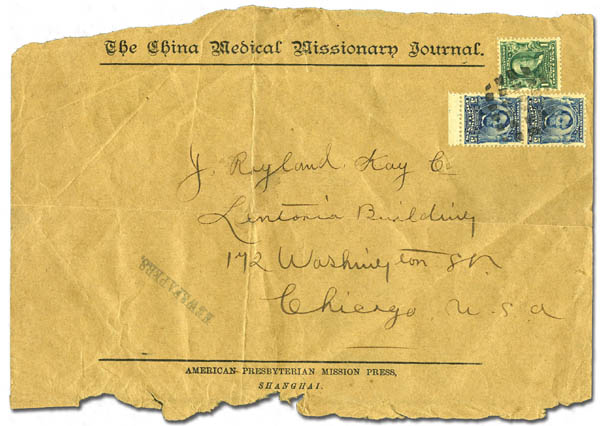 The China Medical Missionary Journal.
J. Ryland Kay Co
Building
172 Washington St.
Chicago U.S.A
NEWSPAPERS.
AMERICAN PRESBYTERIAN MISSION PRESS,
SHANGHAI.